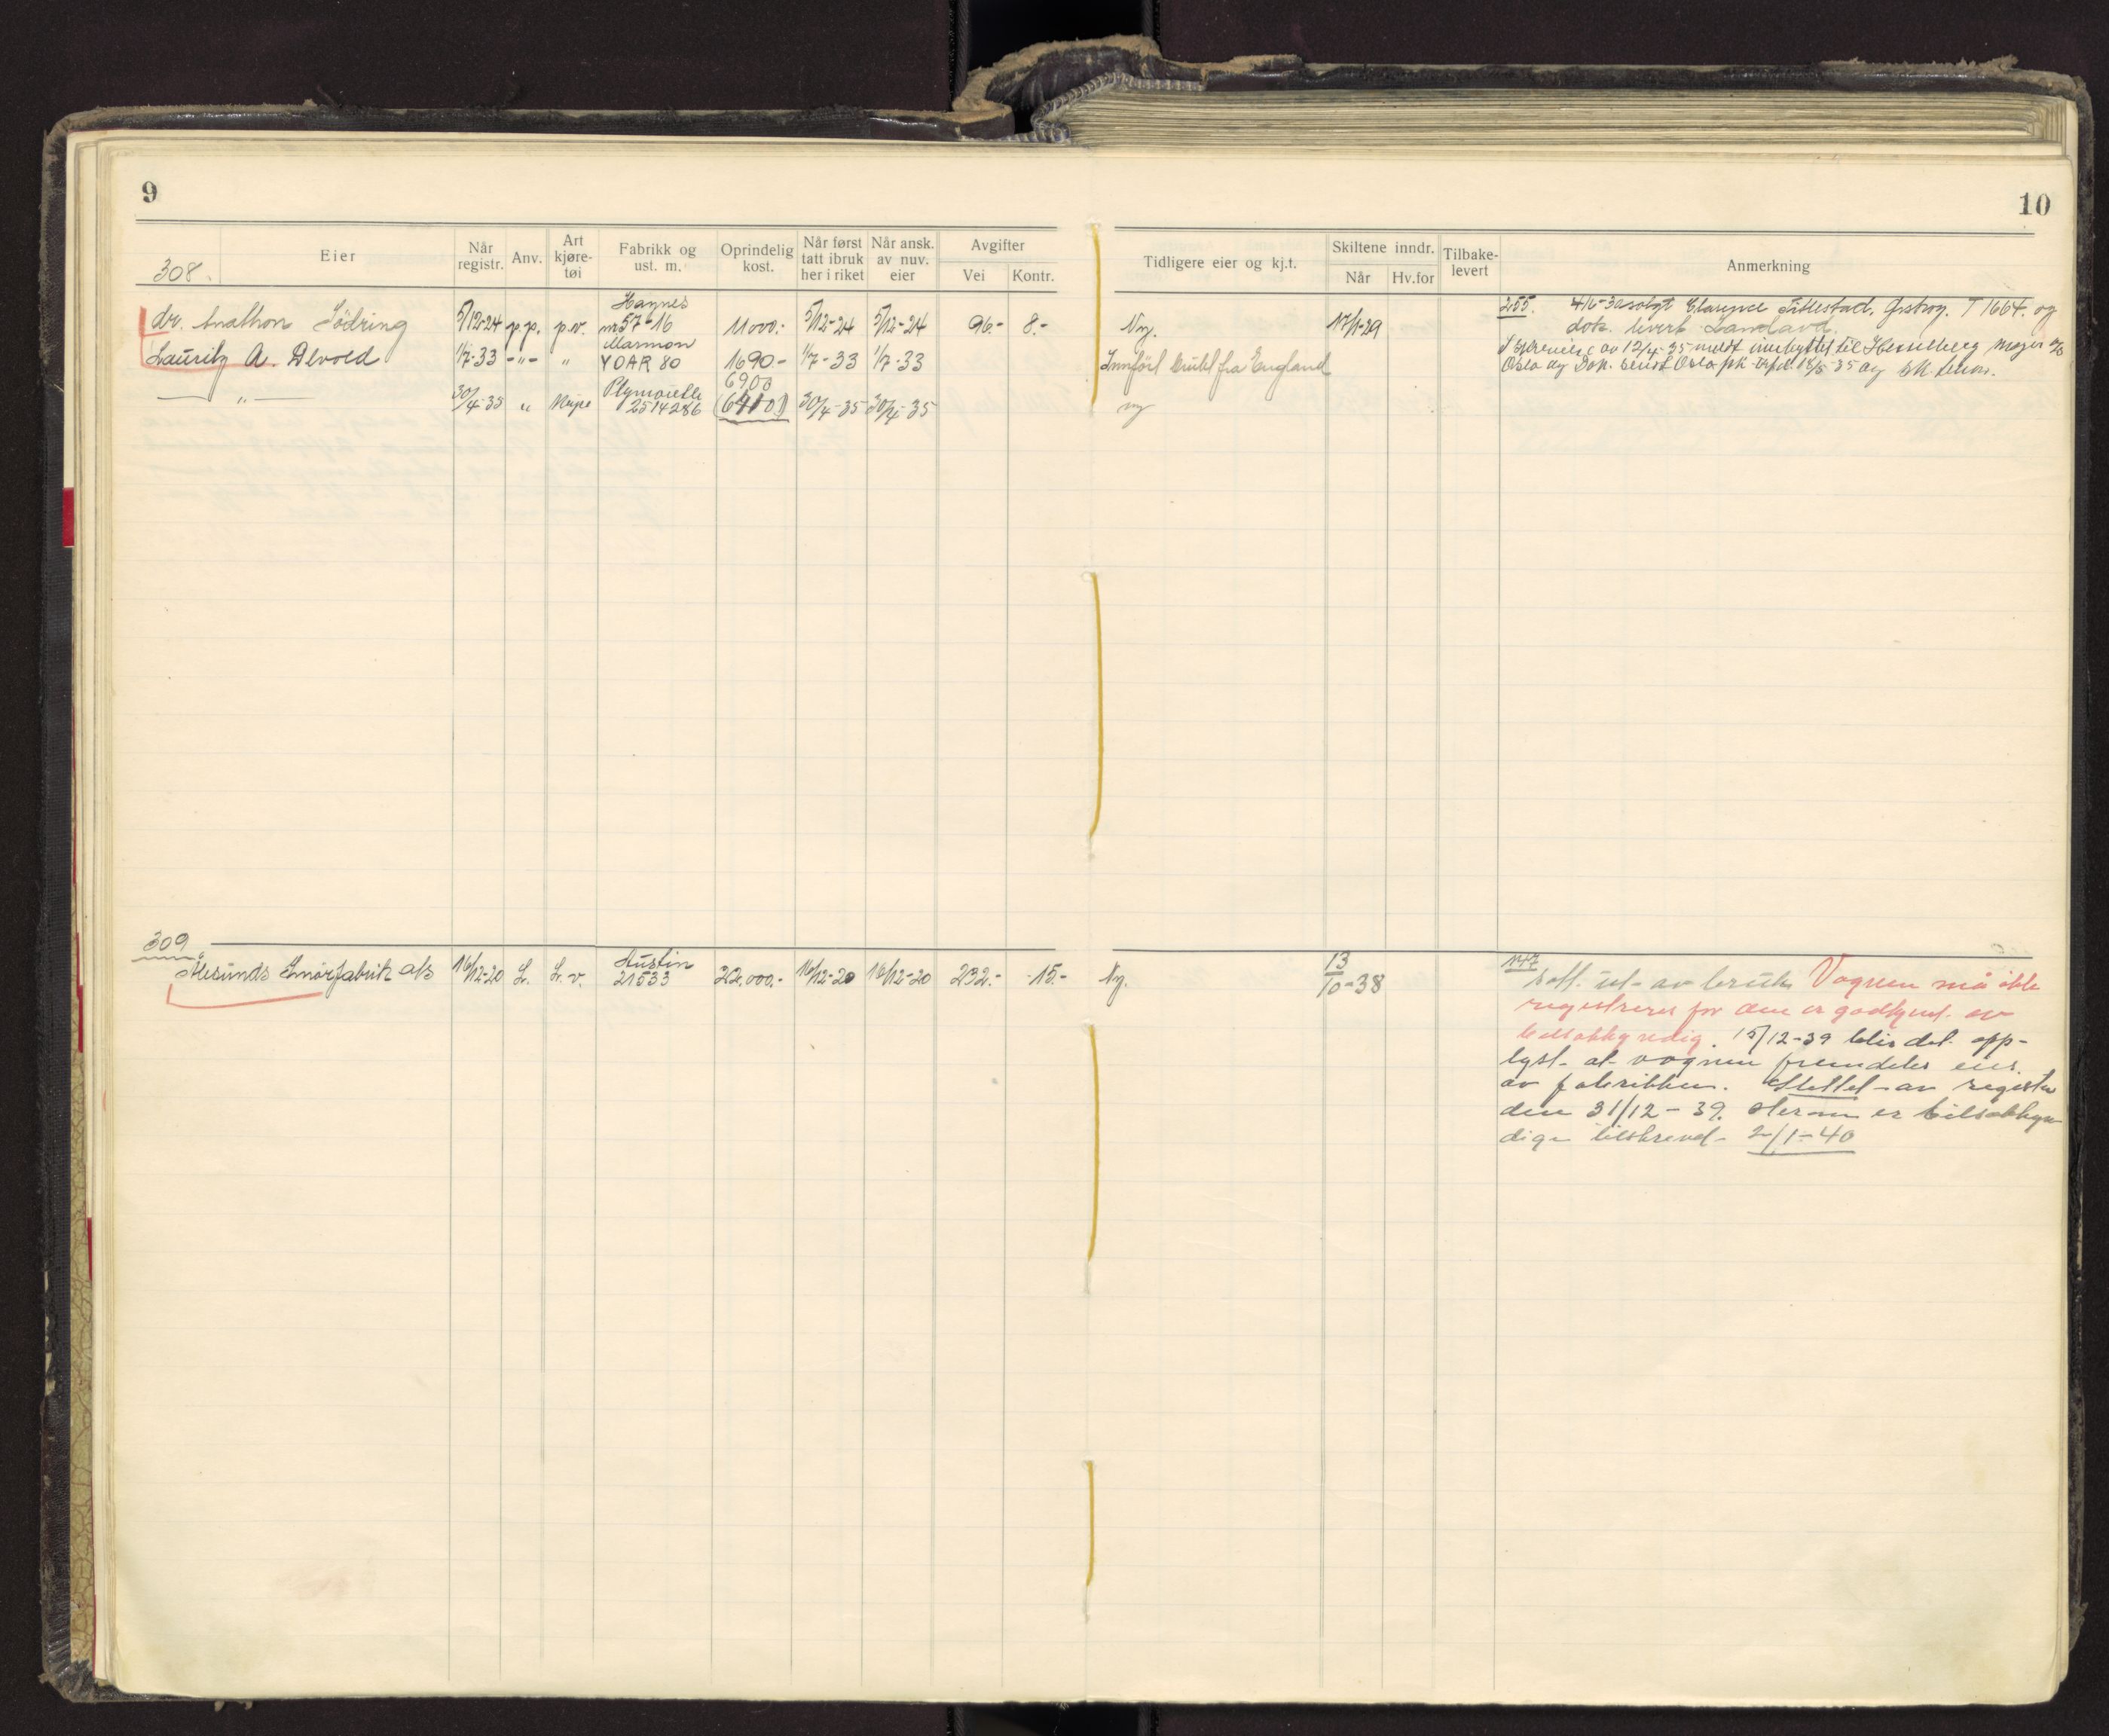 9
10
308.
Eier
Når registr.
Anv.
Art kjøre-tøi
Fabrikk og ust. m.
Oprindelig kost.
Når først tatt ibruk her i riket
Når ansk. av nuv. eier
Avgifter
Vei
Kontr.
Tidligere eier og kj.t.
Skiltene inndr.
Når
Hv.for
Tilbake-levert
Anmerkning
dr. Anathon Södring 5/12-24 p.p. p.v. Haynes m 57-16 11000.- 5/12-24 5/12-24 96.- 8.- Ny. 17/1-29 255. 4/6-30 solgt Tillestad, T 1664. og
dok. levert
Lauritz A. Devold 1/7-33 -"- " Marmon YOAR 80 1690- 1/7-33 1/7-33 Innfört brukt fra England I skrivelse av 12/4-35 meldt innbyttet til Hesselberg Meyer %
Oslo og Dok. sendt Oslo pk 15/5-35 og
—"— 30/4-35 " Plymouth 2514286 6900 (6410) 30/4-35 30/4-35 ny
309
Ålesunds Smörfabrik a/s 16/12-20 L. L.v. Austin 21533 22.000.- 16/12-20 16/12-20 232.- 15.- Ny. 13/10-38 satt ut av bruk Vognen må ikke
registreres for den er godkjent av
bilsakkyndig. 15/12-39 blir det opp-
lyst at vognen fremdeles eies
av fabrikken. Slettet av register
den 31/12-39. Herom er bilsakkyn-
dige tilskrevet 2/1-40